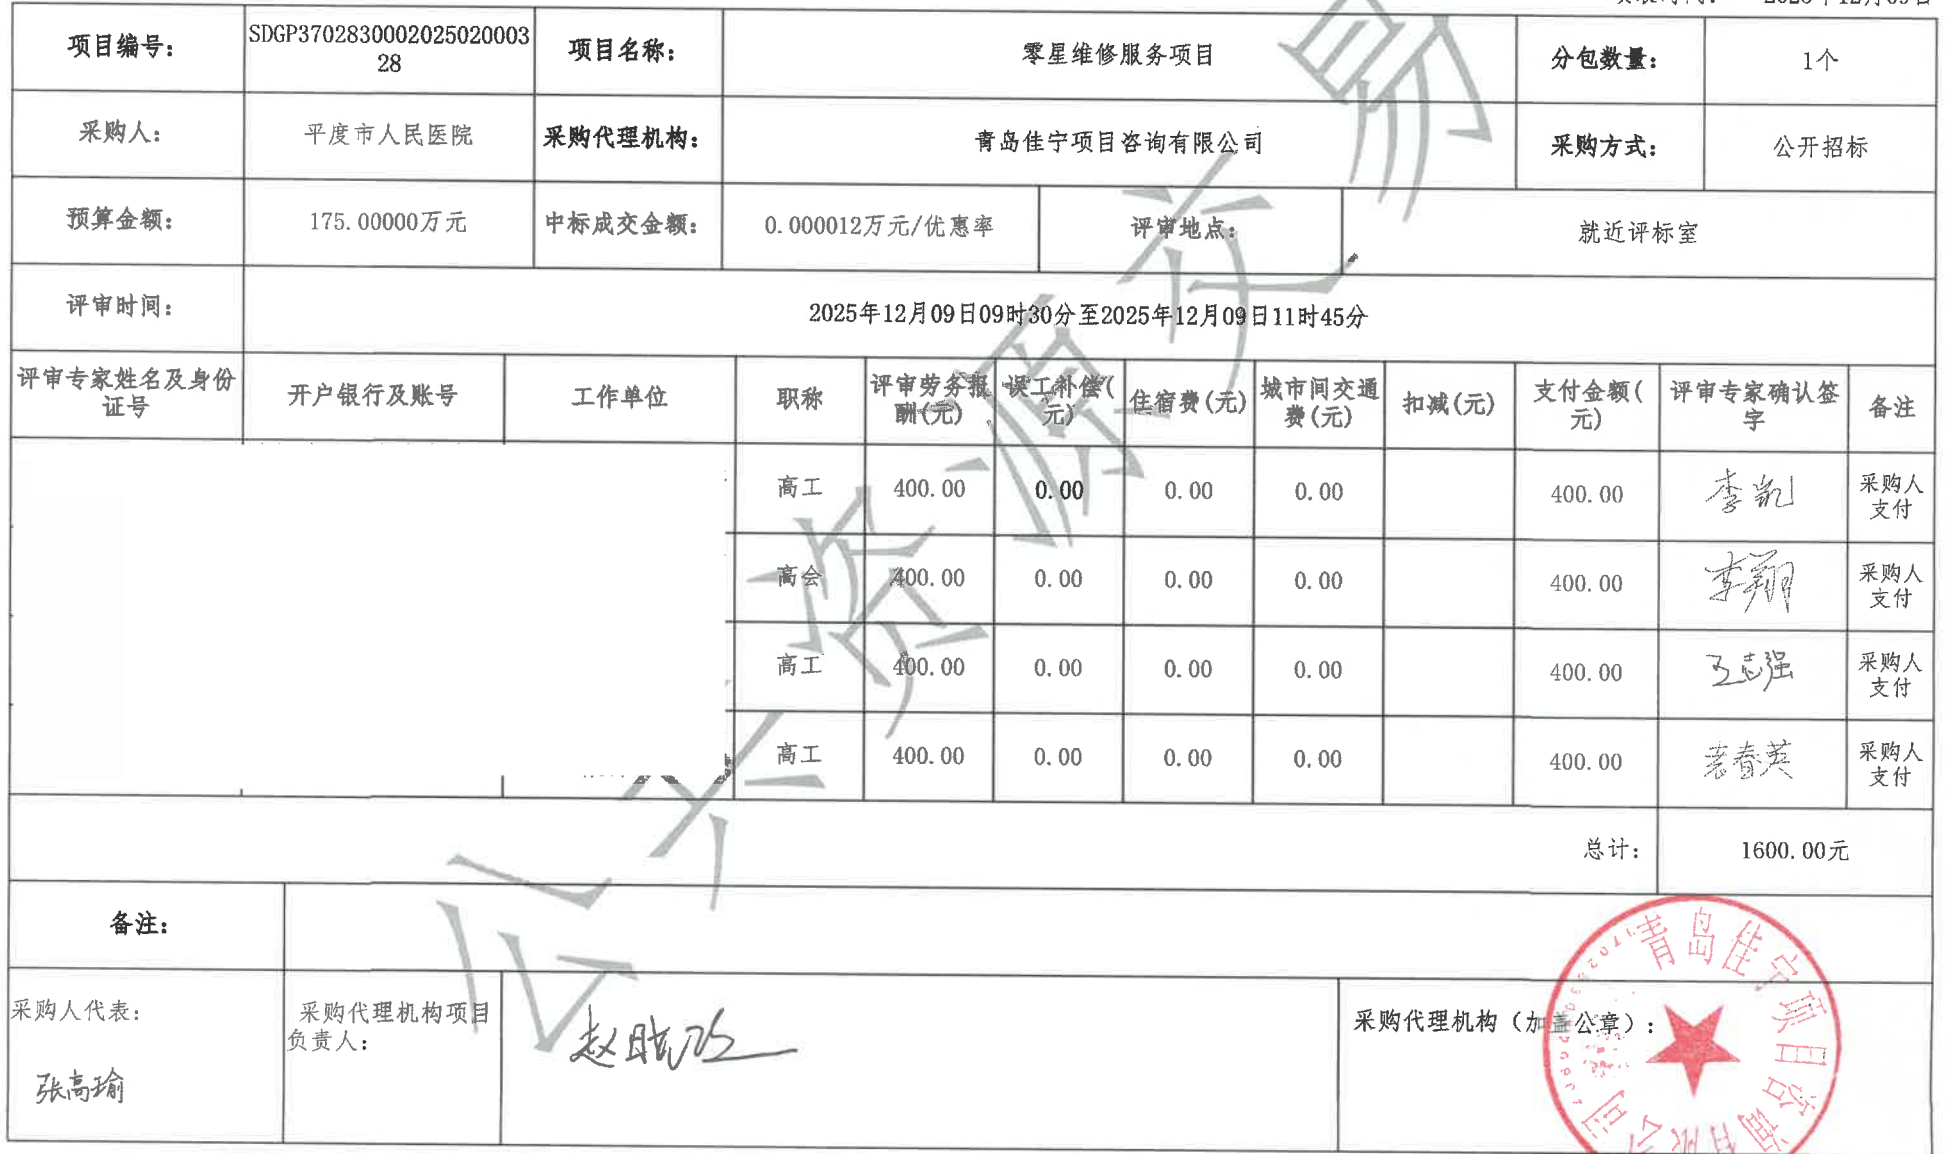 项目编号：
SDGP3702830002025020003
28
项目名称：
零星维修服务项目
分包数量：
1个
采购人：
平度市人民医院
采购代理机构：
青岛佳宁项目咨询有限公司
采购方式：
公开招标
预算金额：
175.00000万元
中标成交金额：
0.000012万元/优惠率
评审地点：
就近评标室
评审时间：
2025年12月09日09时30分至2025年12月09日11时45分
评审专家姓名及身份
证号
开户银行及账号
工作单位
职称
评审劳务报
酬(元)
误工补偿(
元)
住宿费(元)
城市间交通
费(元)
扣减(元)
支付金额(
元)
评审专家确认签
字
备注
高工
400.00
0.00
0.00
0.00
400.00
李凯
采购人
支付
高会
400.00
0.00
0.00
0.00
400.00
李翔
采购人
支付
高工
400.00
0.00
0.00
0.00
400.00
王志强
采购人
支付
高工
400.00
0.00
0.00
0.00
400.00
春英
采购人
支付
总计：
1600.00元
备注：
采购人代表：
张高瑜
采购代理机构项目
负责人：
赵晓
采购代理机构（加盖公章）：
青岛佳宁项目咨询有限公司
公共资源交易